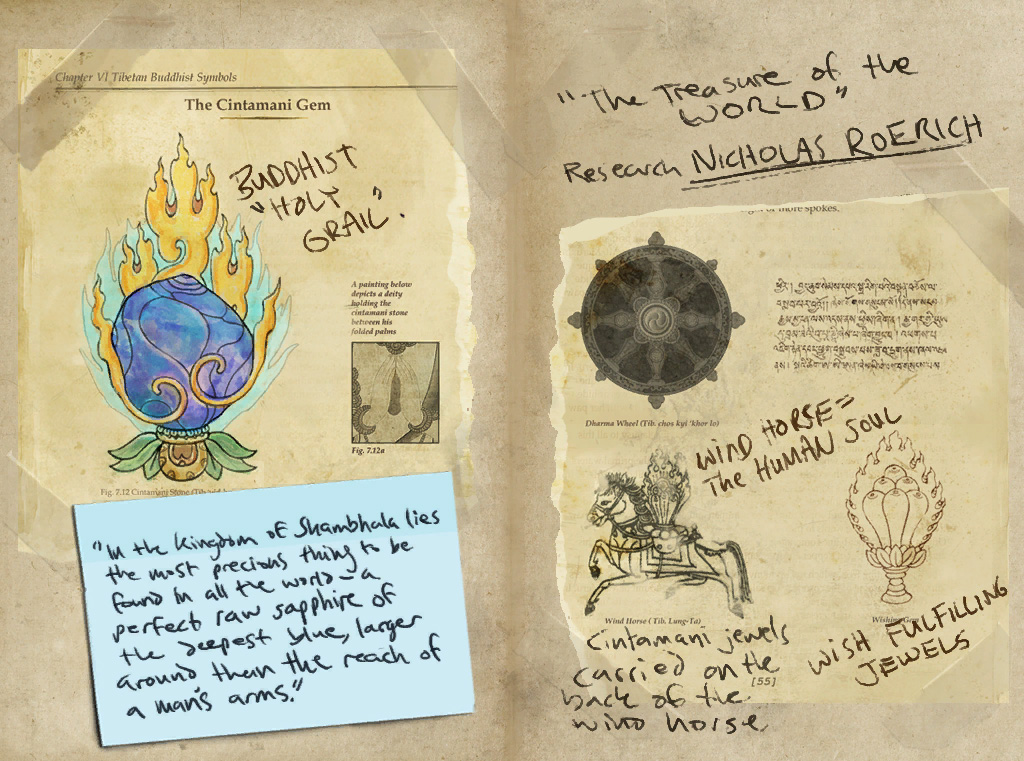 Chapter VI Tibetan Buddhist Symbols
The Cintamani Gem
BUDDHIST
"HOLY
GRAIL".
A painting below
depicts a deity
holding the
cintamani stone
between his
folded palms
Fig. 7.12a
Fig. 7.12 Cintamani Stone (Tib.
"In the kingdom of Shambhala lies
the most precious thing to be
found in all the world – a
perfect raw sapphire of
the deepest blue, larger
around than the reach of
a man's arms."
"The Treasure of the
WORLD"
Research NICHOLAS ROERICH
or more spokes.
Dharma Wheel (Tib. chos kyi 'khor lo)
WIND HORSE =
The HUMAN SOUL
Wind Horse (Tib. Lung-Ta)
Wishing
Cintamani jewels
carried on the
back of the
wind horse
[55]
WISH FULFILLING
JEWELS